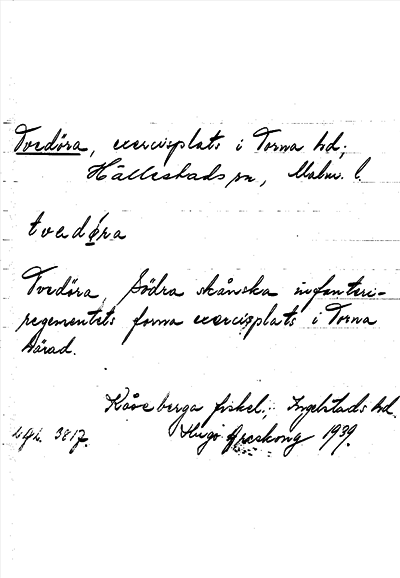 Tvedöra, exercisplats i Torna hd;
Hällestads sn, Malm. l.
tvedǿra
Tvedöra, Södra skånska infanteri-
regementets forna exercisplats i Torna
härad.
Kåseberga fiskel., Ingelstads hd.
3817. Hugo Areskoug 1939.